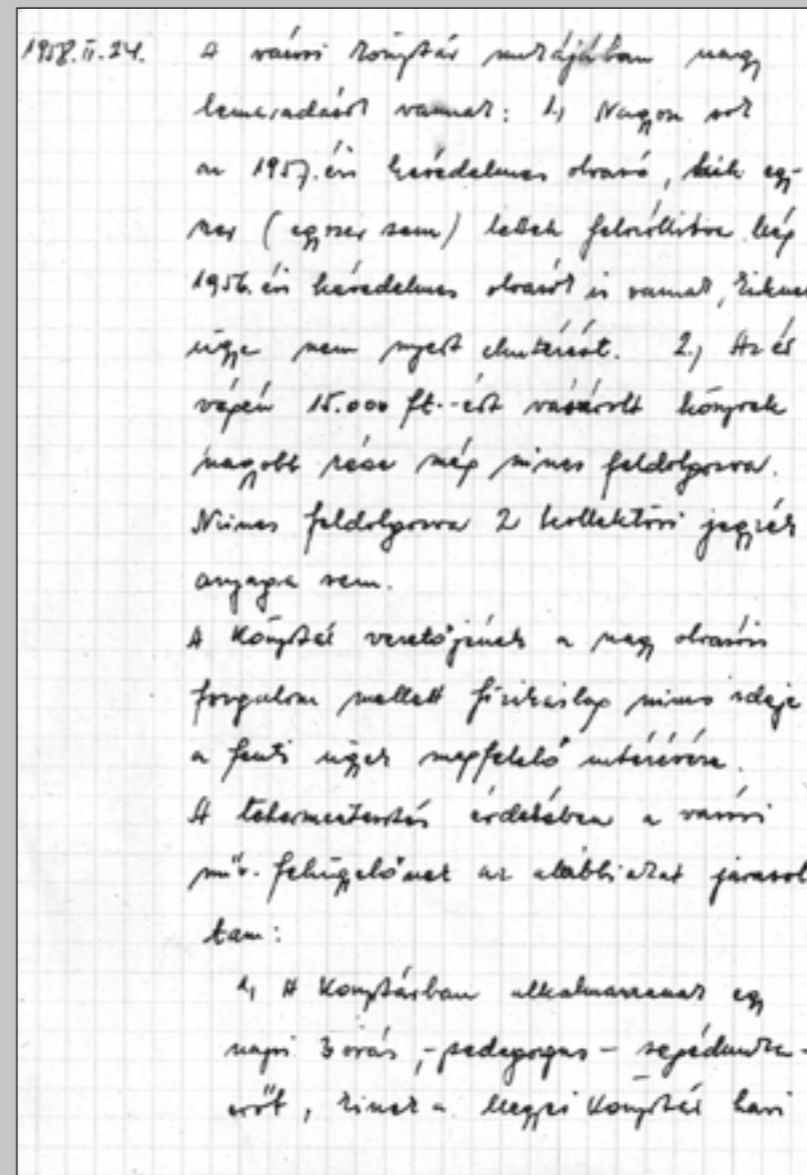 1958. II. 24. A városi könyvtár munkájában nagy
lemaradások vannak: 1., Nagyon sok
az 1957. évi késedelmes olvasó, kik egy-
szer (egyszer sem) lettek felszólítva. Még
1956. évi késedelmes olvasók is vannak, kiknek
ügye nem nyert elintézést. 2., Az év
végén 15.000 ft.-ért vásárolt könyvek
nagyobb része még nincs feldolgozva.
Nincs feldolgozva 2 kollektori jegyzék
anyaga sem.
A Könyvtár vezetőjének a nagy olvasói
forgalom mellett fizikailag nincs ideje
a fenti ügyek megfelelő intézésére.
A tehermentesítés érdekében a városi
műv. felügyelőnek az alábbiakat javasol
tam:
1, A Könyvtárban alkalmazzanak egy
napi 3 órás, - pedagógus - segédmunka-
erőt, kinek a Megyei Könyvtár havi